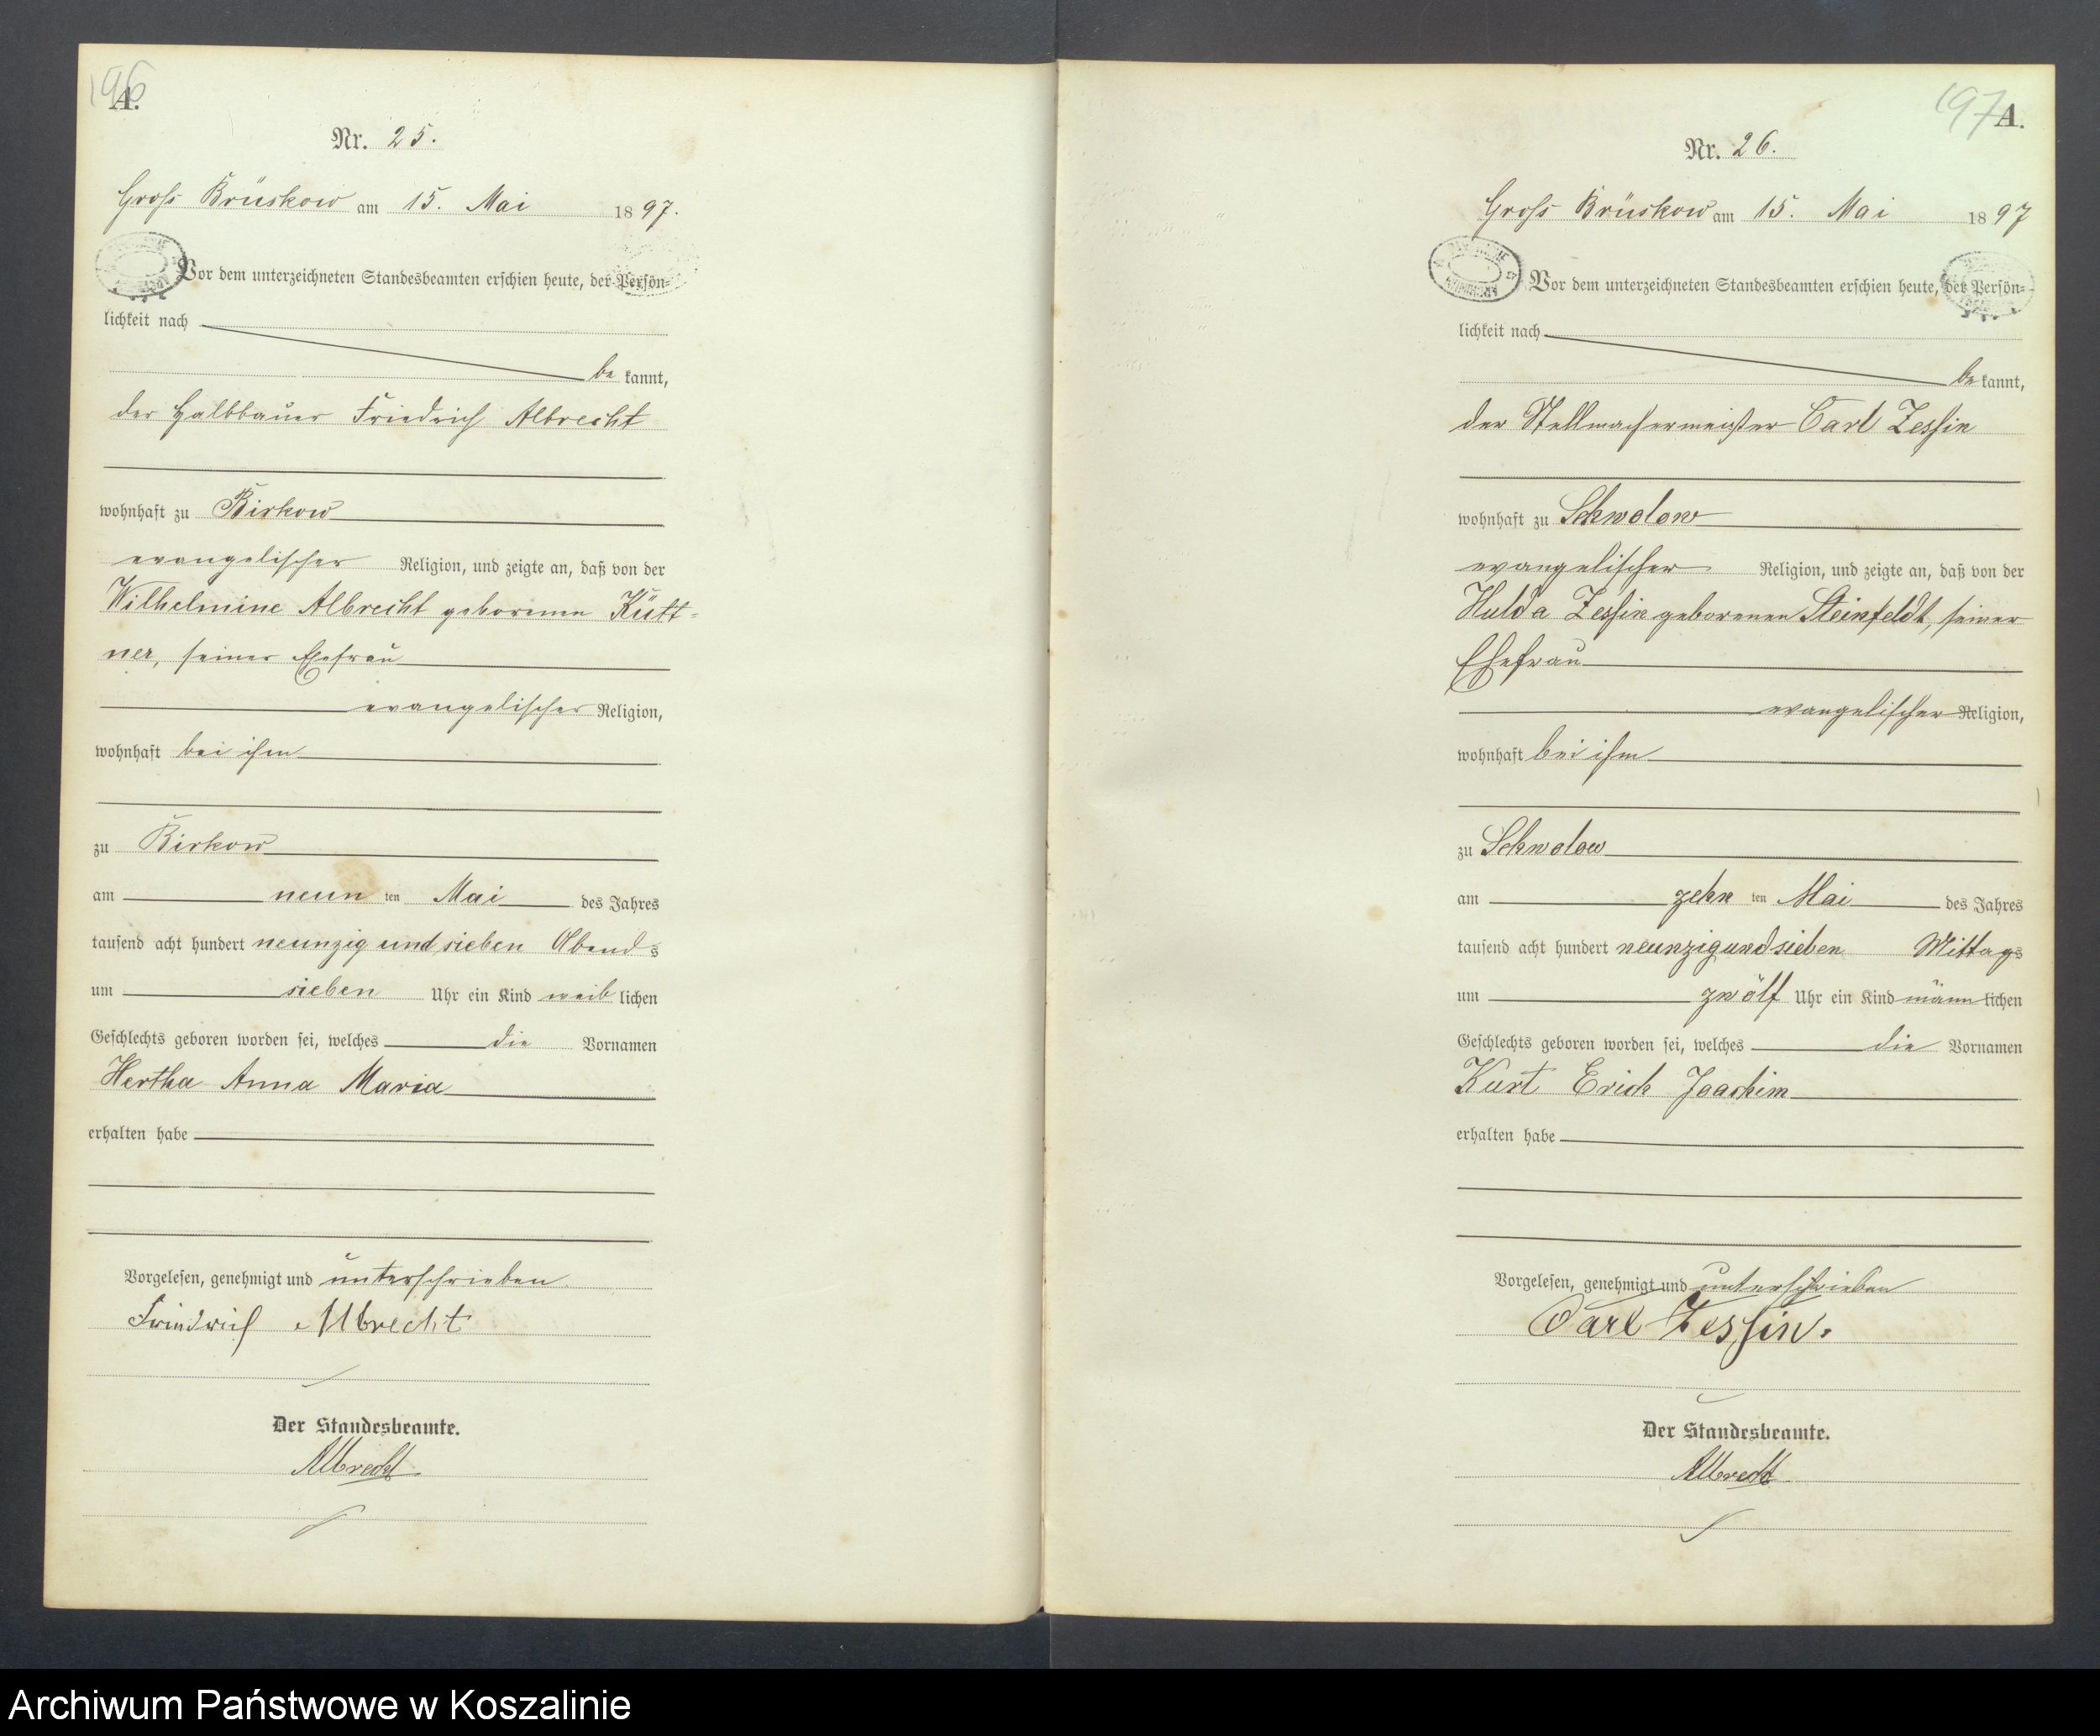 196
A.
Nr. 25.
Groß Brüskow am 15. Mai 1897.
Vor dem unterzeichneten Standesbeamten erschien heute, der Persön-
lichkeit nach
be kannt,
der Halbbauer Friedrich Albrecht
wohnhaft zu Birkow
evangelischer Religion, und zeigte an, daß von der
Wilhelmine Albrecht geborenen Kütt-
ner, seiner Ehefrau
evangelischer Religion,
wohnhaft bei ihm
zu Birkow
am neun ten Mai des Jahres
tausend acht hundert neunzig und sieben Abends
um sieben Uhr ein Kind weib lichen
Geschlechts geboren worden sei, welches die Vornamen
Hertha Anna Maria
erhalten habe
Vorgelesen, genehmigt und unterschrieben
Friedrich Albrecht
Der Standesbeamte.
Albrecht
197
A.
Nr. 26.
Groß Brüskow am 15. Mai 1897
Vor dem unterzeichneten Standesbeamten erschien heute, der Persön-
lichkeit nach
be kannt,
der Stellmachermeister Carl Zessin
wohnhaft zu Schwolow
evangelischer Religion, und zeigte an, daß von der
Hulda Zessin geborenen Steinfeldt, seiner
Ehefrau
evangelischer Religion,
wohnhaft bei ihm
zu Schwolow
am zehn ten Mai des Jahres
tausend acht hundert neunzig und sieben Mittags
um zwölf Uhr ein Kind männ lichen
Geschlechts geboren worden sei, welches die Vornamen
Kurt Erich Joachim
erhalten habe
Vorgelesen, genehmigt und unterschrieben
Carl Zessin.
Der Standesbeamte.
Albrecht
Archiwum Państwowe w Koszalinie